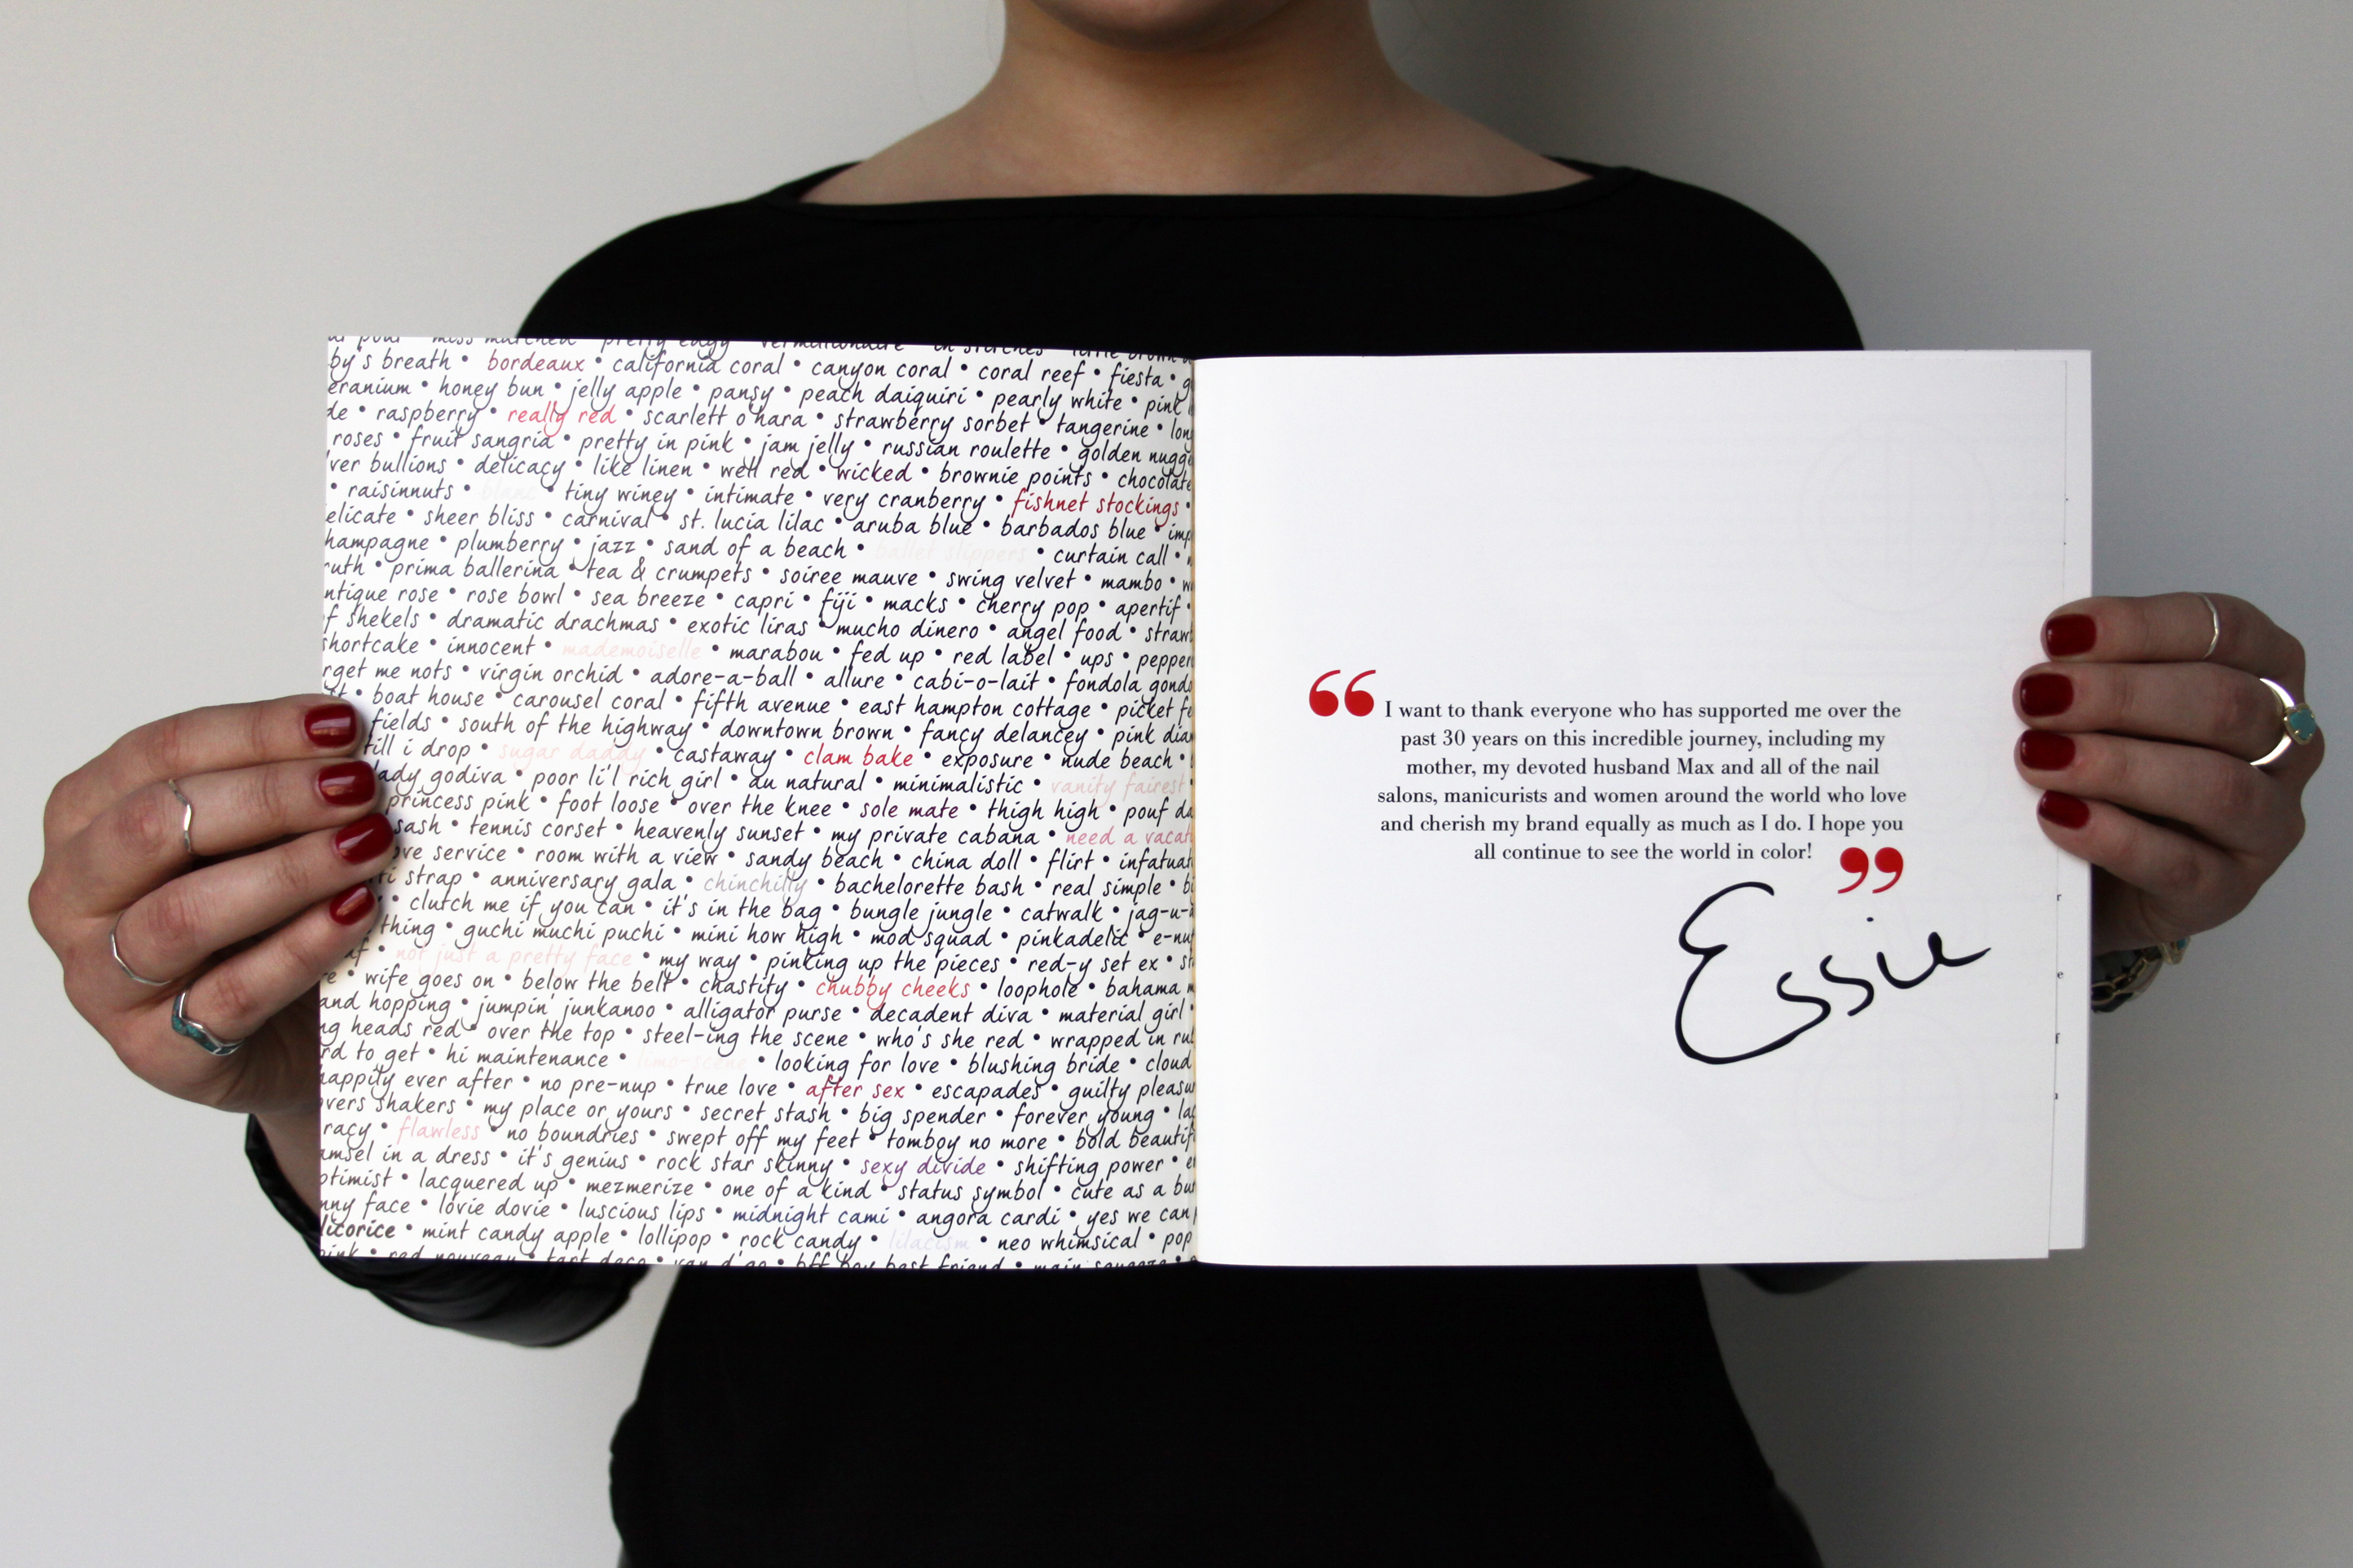 miss matched pretty edgy vermillionaire in stitches
by's breath • bordeaux • california coral • canyon coral • coral reef • fiesta • g
eranium • honey bun • jelly apple • pansy • peach daiquiri • pearly white • pink
de • raspberry • really red • scarlett o'hara • strawberry sorbet • tangerine • lon
roses • fruit sangria • pretty in pink • jam jelly • russian roulette • golden nugge
ver bullions • delicacy • like linen • well red • wicked • brownie points • chocolate
• raisinnuts • blanc • tiny winey • intimate • very cranberry • fishnet stockings •
elicate • sheer bliss • carnival • st. lucia lilac • aruba blue • barbados blue • imp
hampagne • plumberry • jazz • sand of a beach • ballet slippers • curtain call •
ruth • prima ballerina • tea & crumpets • soiree mauve • swing velvet • mambo • w
ntique rose • rose bowl • sea breeze • capri • fiji • macks • cherry pop • apertif •
f shekels • dramatic drachmas • exotic liras • mucho dinero • angel food • straw
shortcake • innocent • mademoiselle • marabou • fed up • red label • ups • pepper
rget me nots • virgin orchid • adore-a-ball • allure • cabi-o-lait • fondola gondo
• boat house • carousel coral • fifth avenue • east hampton cottage • picket fe
fields • south of the highway • downtown brown • fancy delancey • pink dia
till i drop • sugar daddy • castaway • clam bake • exposure • nude beach •
lady godiva • poor li'l rich girl • au natural • minimalistic • vanity fairest •
princess pink • foot loose • over the knee • sole mate • thigh high • pouf da
sash • tennis corset • heavenly sunset • my private cabana • need a vacat
ove service • room with a view • sandy beach • china doll • flirt • infatuat
ti strap • anniversary gala • chinchilly • bachelorette bash • real simple • bi
• clutch me if you can • it's in the bag • bungle jungle • catwalk • jag-u-a
thing • guchi muchi puchi • mini how high • mod squad • pinkadelic • e-nu
af • not just a pretty face • my way • pinking up the pieces • red-y set ex • st
re • wife goes on • below the belt • chastity • chubby cheeks • loophole • bahama m
and hopping • jumpin' junkanoo • alligator purse • decadent diva • material girl •
ng heads red • over the top • steel-ing the scene • who's she red • wrapped in ru
rd to get • hi maintenance • limo-scene • looking for love • blushing bride • cloud
happily ever after • no pre-nup • true love • after sex • escapades • guilty pleasu
overs shakers • my place or yours • secret stash • big spender • forever young • la
racy • flawless • no boundries • swept off my feet • tomboy no more • bold beautif
amsel in a dress • it's genius • rock star skinny • sexy divide • shifting power • e
ptimist • lacquered up • mezmerize • one of a kind • status symbol • cute as a bu
nny face • lovie dovie • luscious lips • midnight cami • angora cardi • yes we can
licorice • mint candy apple • lollipop • rock candy • lilacism • neo whimsical • pop
pink • red nouveau • tart deco • van d'go • bff boy best friend • main squeeze •
“ I want to thank everyone who has supported me over the
past 30 years on this incredible journey, including my
mother, my devoted husband Max and all of the nail
salons, manicurists and women around the world who love
and cherish my brand equally as much as I do. I hope you
all continue to see the world in color! ”
Essie